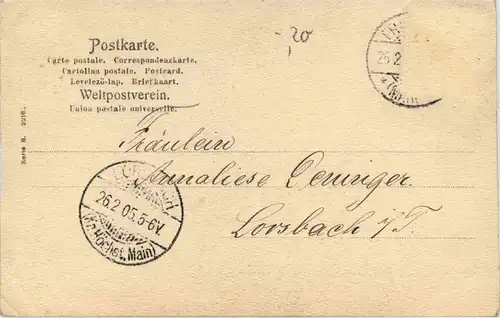 -,20
Postkarte.
Carte postale. Correspondenzkarte.
Cartolina postale. Postcard.
Levelező-lap. Briefkaart.
Weltpostverein.
Union postale universelle.
Serie 8. 2216.
25.2
Fräulein
Annaliese
Lorsbach i/T.
26.2.05.5-6V.
Höchst, Main)